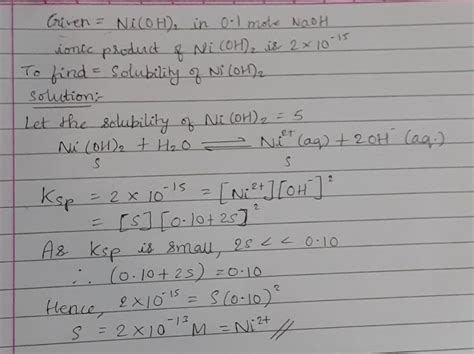 Given = Ni(OH)₂ in 0.1 mole NaOH
ionic product of Ni(OH)₂ is 2×10⁻¹⁵
To find = Solubility of Ni(OH)₂
Solution:-
Let the solubility of Ni(OH)₂ = S
Ni(OH)₂ + H₂O ⇌ Ni²⁺(aq) + 2OH⁻(aq.)
S S
Ksp = 2×10⁻¹⁵ = [Ni²⁺][OH⁻]²
= [S][0.10+2S]²
As Ksp is small, 2S << 0.10
∴ (0.10+2S) = 0.10
Hence, 2×10⁻¹⁵ = S(0.10)²
S = 2×10⁻¹³M = Ni²⁺//